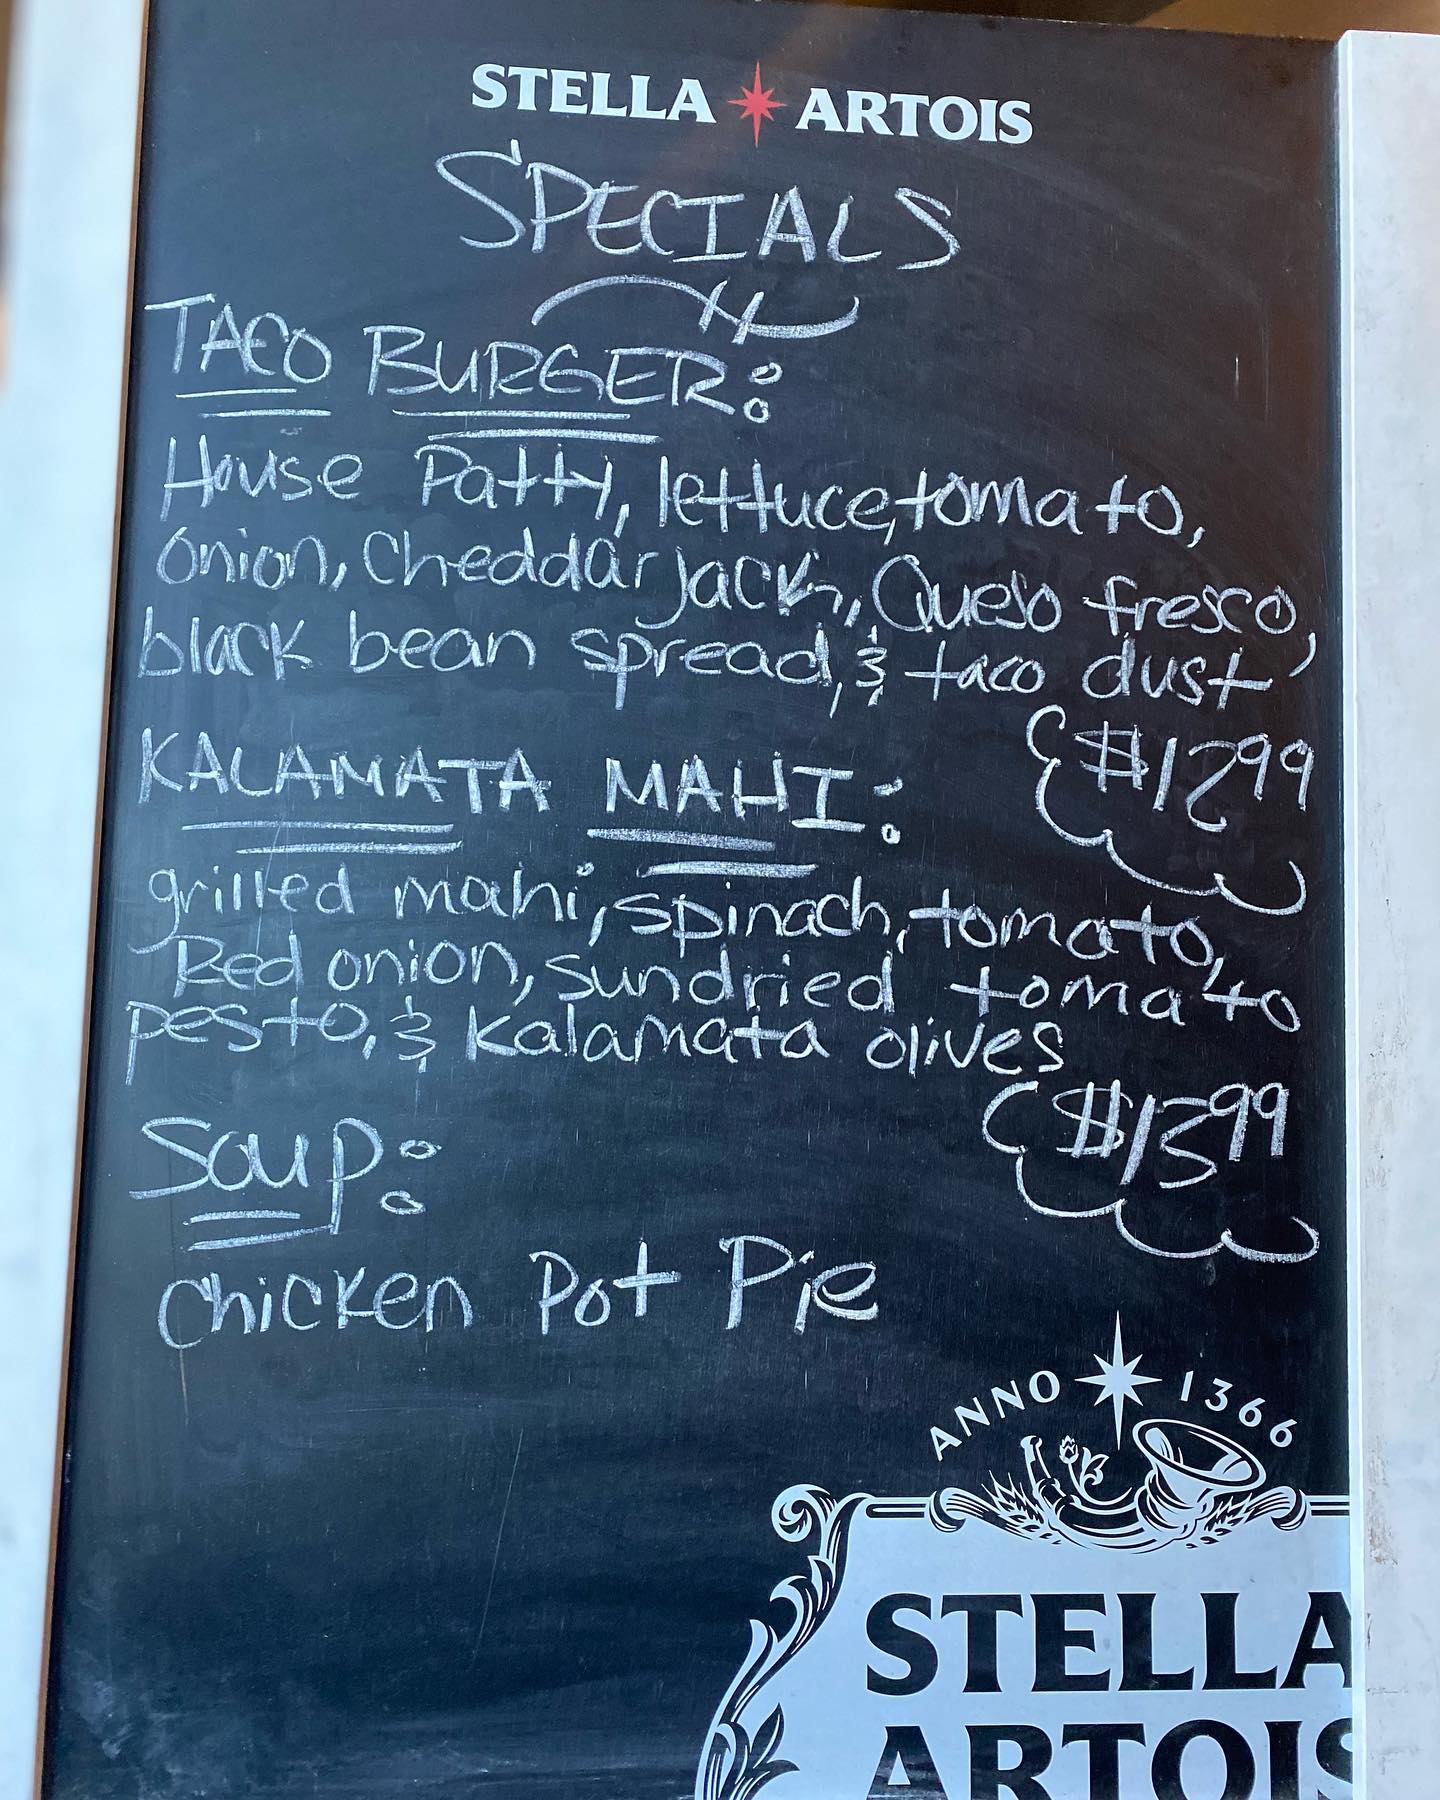 STELLA ARTOIS
SPECIALS
TACO BURGER:
House Patty, lettuce, tomato,
onion, Cheddar jack, Queso fresco,
black bean spread, & taco dust
$12.99
KALAMATA MAHI:
grilled mahi, spinach, tomato,
Red onion, sundried tomato
pesto, & Kalamata olives
$13.99
Soup:
Chicken Pot Pie
ANNO 1366
STELLA
ARTOIS